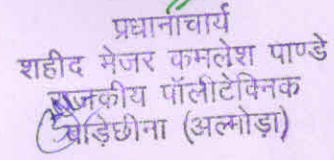 प्रधानाचार्य
शहीद मेजर कमलेश पाण्डे
राजकीय पॉलीटेक्निक
पेड़िछीना (अल्मोड़ा)